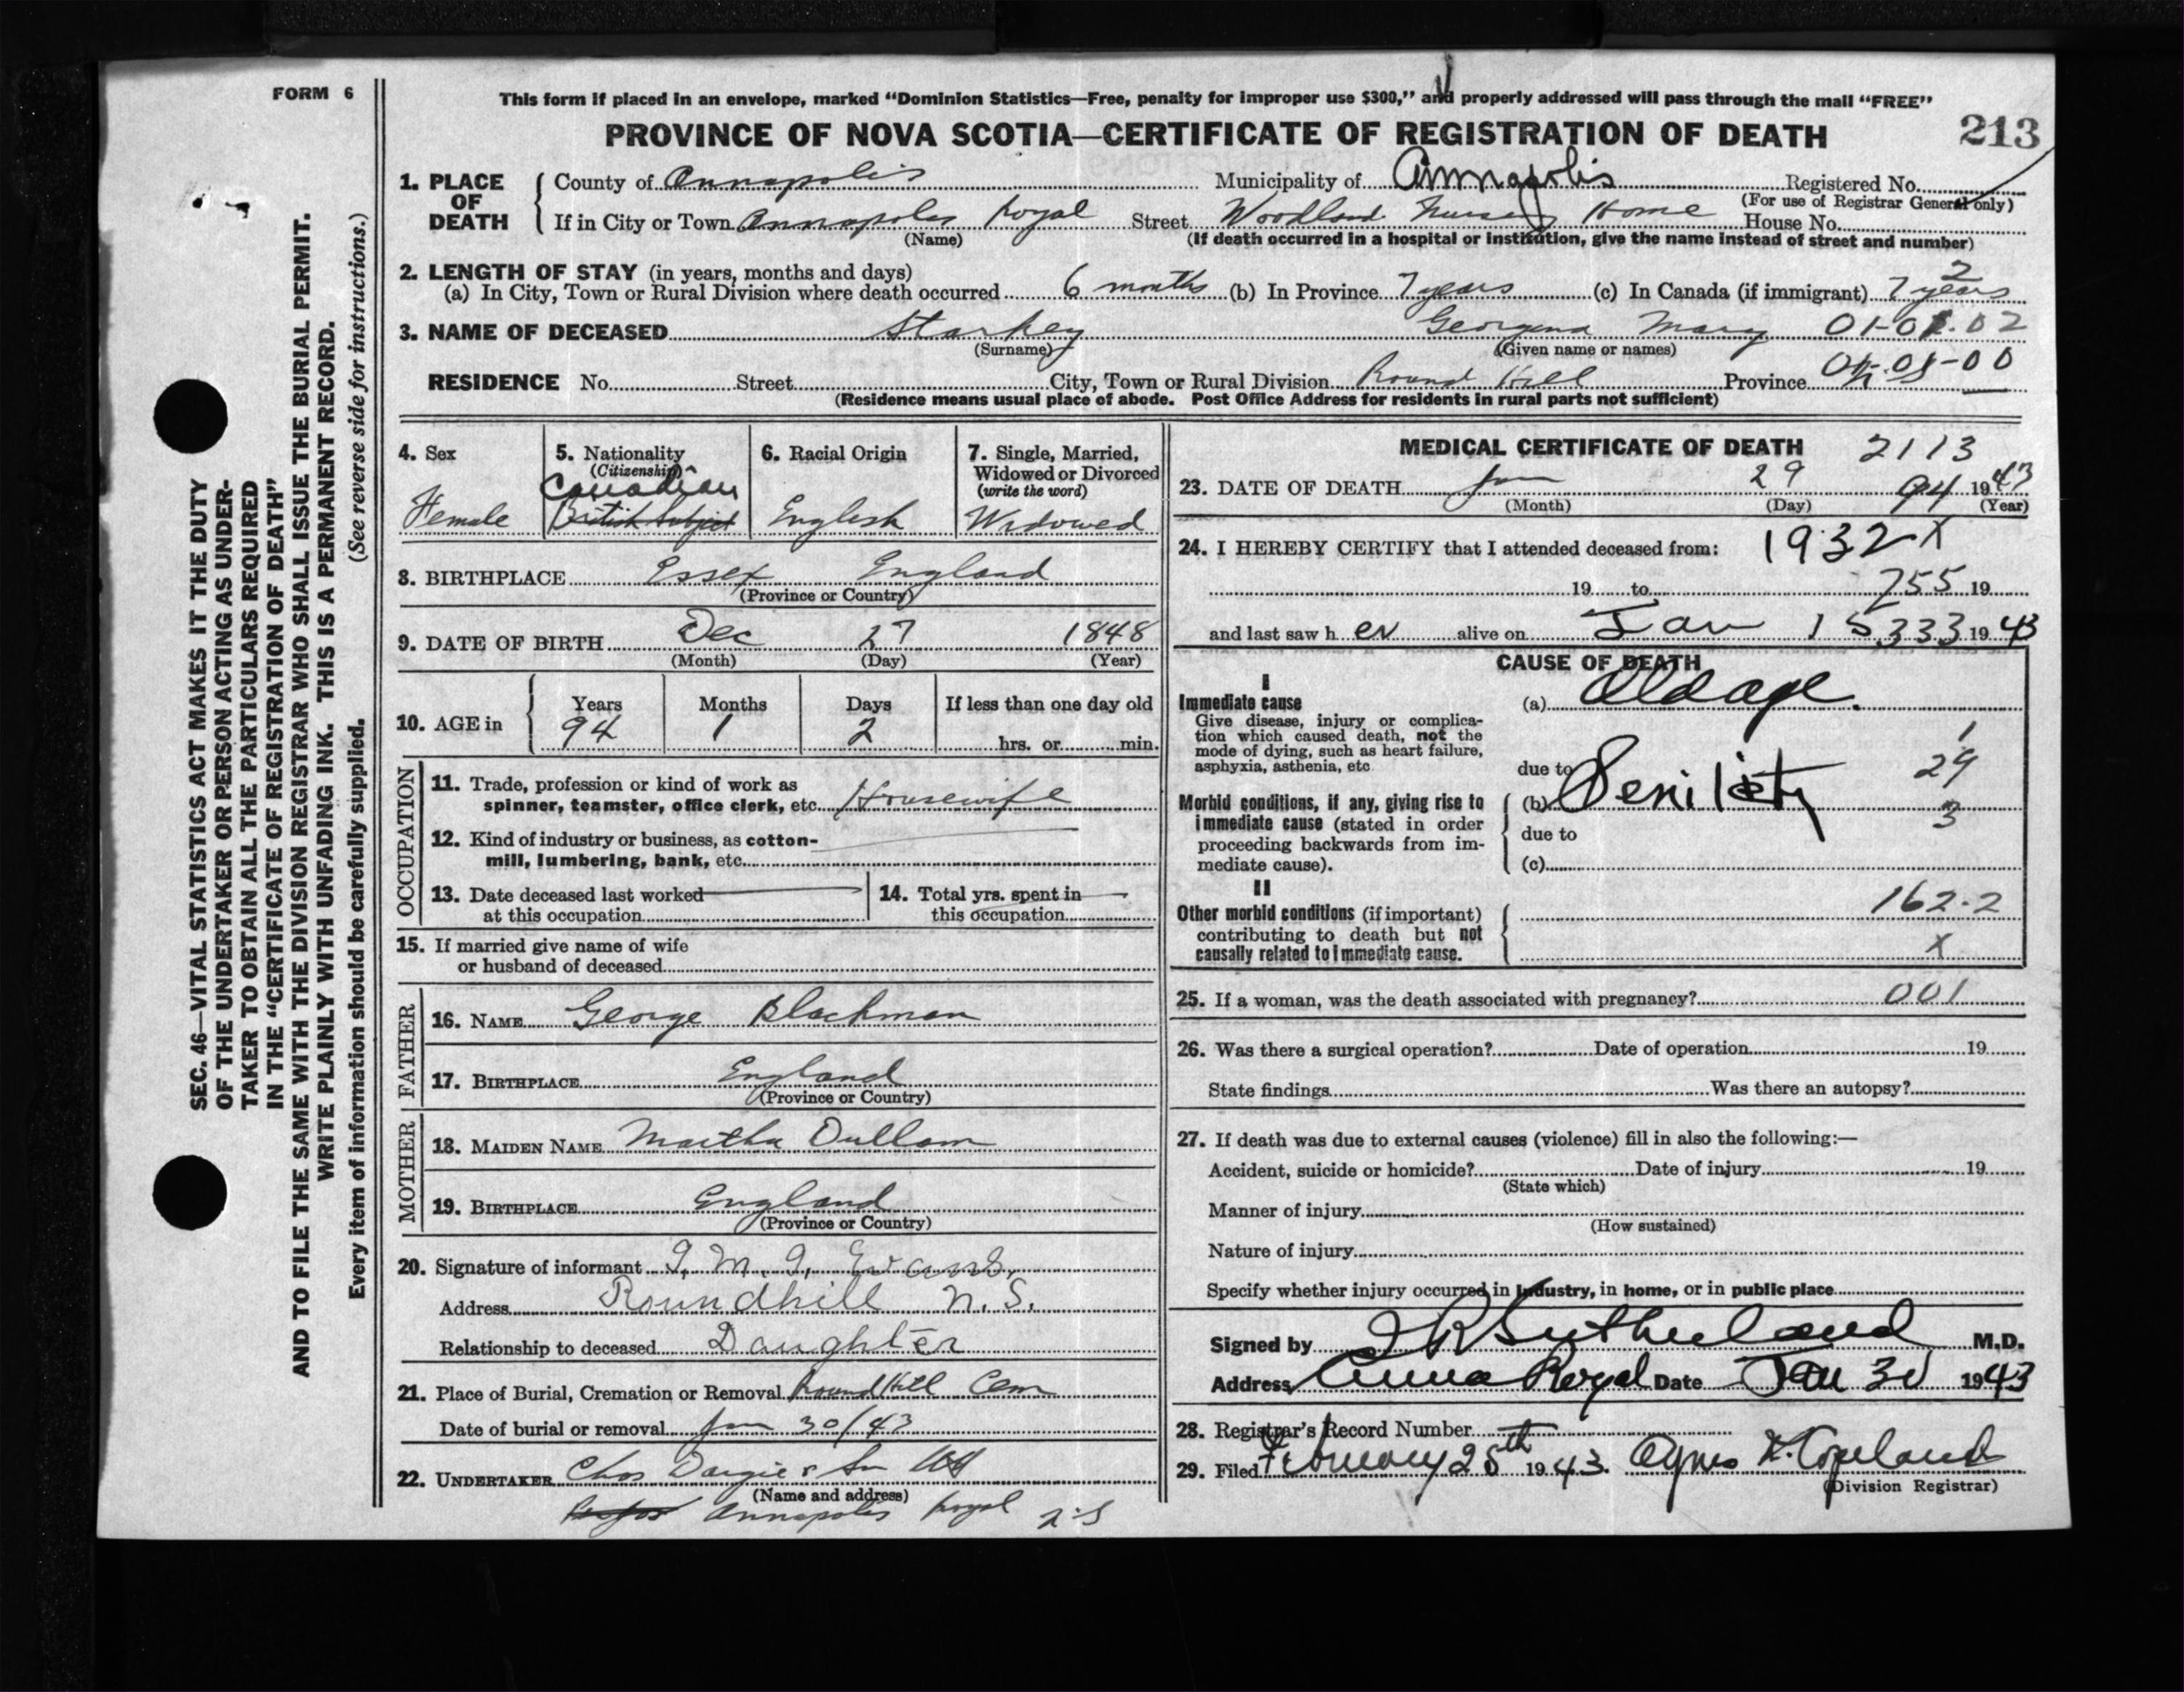 FORM 6
This form if placed in an envelope, marked "Dominion Statistics—Free, penalty for improper use $300," and properly addressed will pass through the mail "FREE"
PROVINCE OF NOVA SCOTIA—CERTIFICATE OF REGISTRATION OF DEATH
213
1. PLACE OF DEATH
County of Annapolis Municipality of Annapolis Registered No.
(For use of Registrar General only)
If in City or Town Annapolis Royal Street Woodland Nursing Home House No.
(Name) (If death occurred in a hospital or institution, give the name instead of street and number)
2. LENGTH OF STAY (in years, months and days) 2
(a) In City, Town or Rural Division where death occurred 6 months (b) In Province 7 years (c) In Canada (if immigrant) 7 years
3. NAME OF DECEASED Starkey Georgena Mary 01-01.02
(Surname) (Given name or names)
RESIDENCE No. Street City, Town or Rural Division Round Hill Province 01-00
(Residence means usual place of abode. Post Office Address for residents in rural parts not sufficient)
4. Sex
Female
5. Nationality
(Citizenship)
Canadian
British Subject
6. Racial Origin
English
7. Single, Married,
Widowed or Divorced
(write the word)
Widowed
8. BIRTHPLACE Essex England
(Province or Country)
9. DATE OF BIRTH Dec 27 1848
(Month) (Day) (Year)
10. AGE in
Years Months Days If less than one day old
94 1 2 hrs. or min.
OCCUPATION
11. Trade, profession or kind of work as
spinner, teamster, office clerk, etc. Housewife
12. Kind of industry or business, as cotton-
mill, lumbering, bank, etc.
13. Date deceased last worked
at this occupation
14. Total yrs. spent in
this occupation
15. If married give name of wife
or husband of deceased
FATHER
16. NAME George Blackman
17. BIRTHPLACE England
(Province or Country)
MOTHER
18. MAIDEN NAME Martha Dullam
19. BIRTHPLACE England
(Province or Country)
20. Signature of informant G. M. G. Evans.
Address Roundhill N.S.
Relationship to deceased Daughter
21. Place of Burial, Cremation or Removal Round Hill Cem
Date of burial or removal Jan 30/43
22. UNDERTAKER Chas Dargie & Son
(Name and address)
Annapolis Royal N.S
MEDICAL CERTIFICATE OF DEATH 2113
23. DATE OF DEATH Jan 29 94 1943
(Month) (Day) (Year)
24. I HEREBY CERTIFY that I attended deceased from: 1932 X
19 to 255 19
and last saw h er alive on Jan 15 333 1943
CAUSE OF DEATH
I
Immediate cause
Give disease, injury or complica-
tion which caused death, not the
mode of dying, such as heart failure,
asphyxia, asthenia, etc.
(a) Old age.
1
due to 29
Morbid conditions, if any, giving rise to
immediate cause (stated in order
proceeding backwards from im-
mediate cause).
(b) Senility 3
due to
(c)
II
Other morbid conditions (if important)
contributing to death but not
causally related to immediate cause.
162.2
X
25. If a woman, was the death associated with pregnancy? 001
26. Was there a surgical operation? Date of operation 19
State findings Was there an autopsy?
27. If death was due to external causes (violence) fill in also the following:—
Accident, suicide or homicide? Date of injury 19
(State which)
Manner of injury
(How sustained)
Nature of injury
Specify whether injury occurred in industry, in home, or in public place
Signed by Sutherland M.D.
Address Anna Royal Date Jan 30 1943
28. Registrar's Record Number
29. Filed February 25th 1943. Agnes Copeland
(Division Registrar)
SEC. 46—VITAL STATISTICS ACT MAKES IT THE DUTY
OF THE UNDERTAKER OR PERSON ACTING AS UNDER-
TAKER TO OBTAIN ALL THE PARTICULARS REQUIRED
IN THE "CERTIFICATE OF REGISTRATION OF DEATH"
AND TO FILE THE SAME WITH THE DIVISION REGISTRAR WHO SHALL ISSUE THE BURIAL PERMIT.
WRITE PLAINLY WITH UNFADING INK. THIS IS A PERMANENT RECORD.
Every item of information should be carefully supplied. (See reverse side for instructions.)